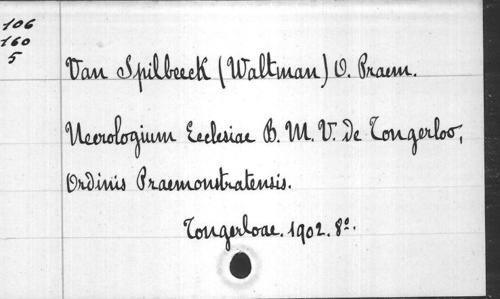 106
160
5
Van Spilbeeck (Waltman) O. Praem.
Necrologium Ecclesiae B. M. V. de Tongerloo,
Ordinis Praemonstratensis.
Tongerloae. 1902. 8º.